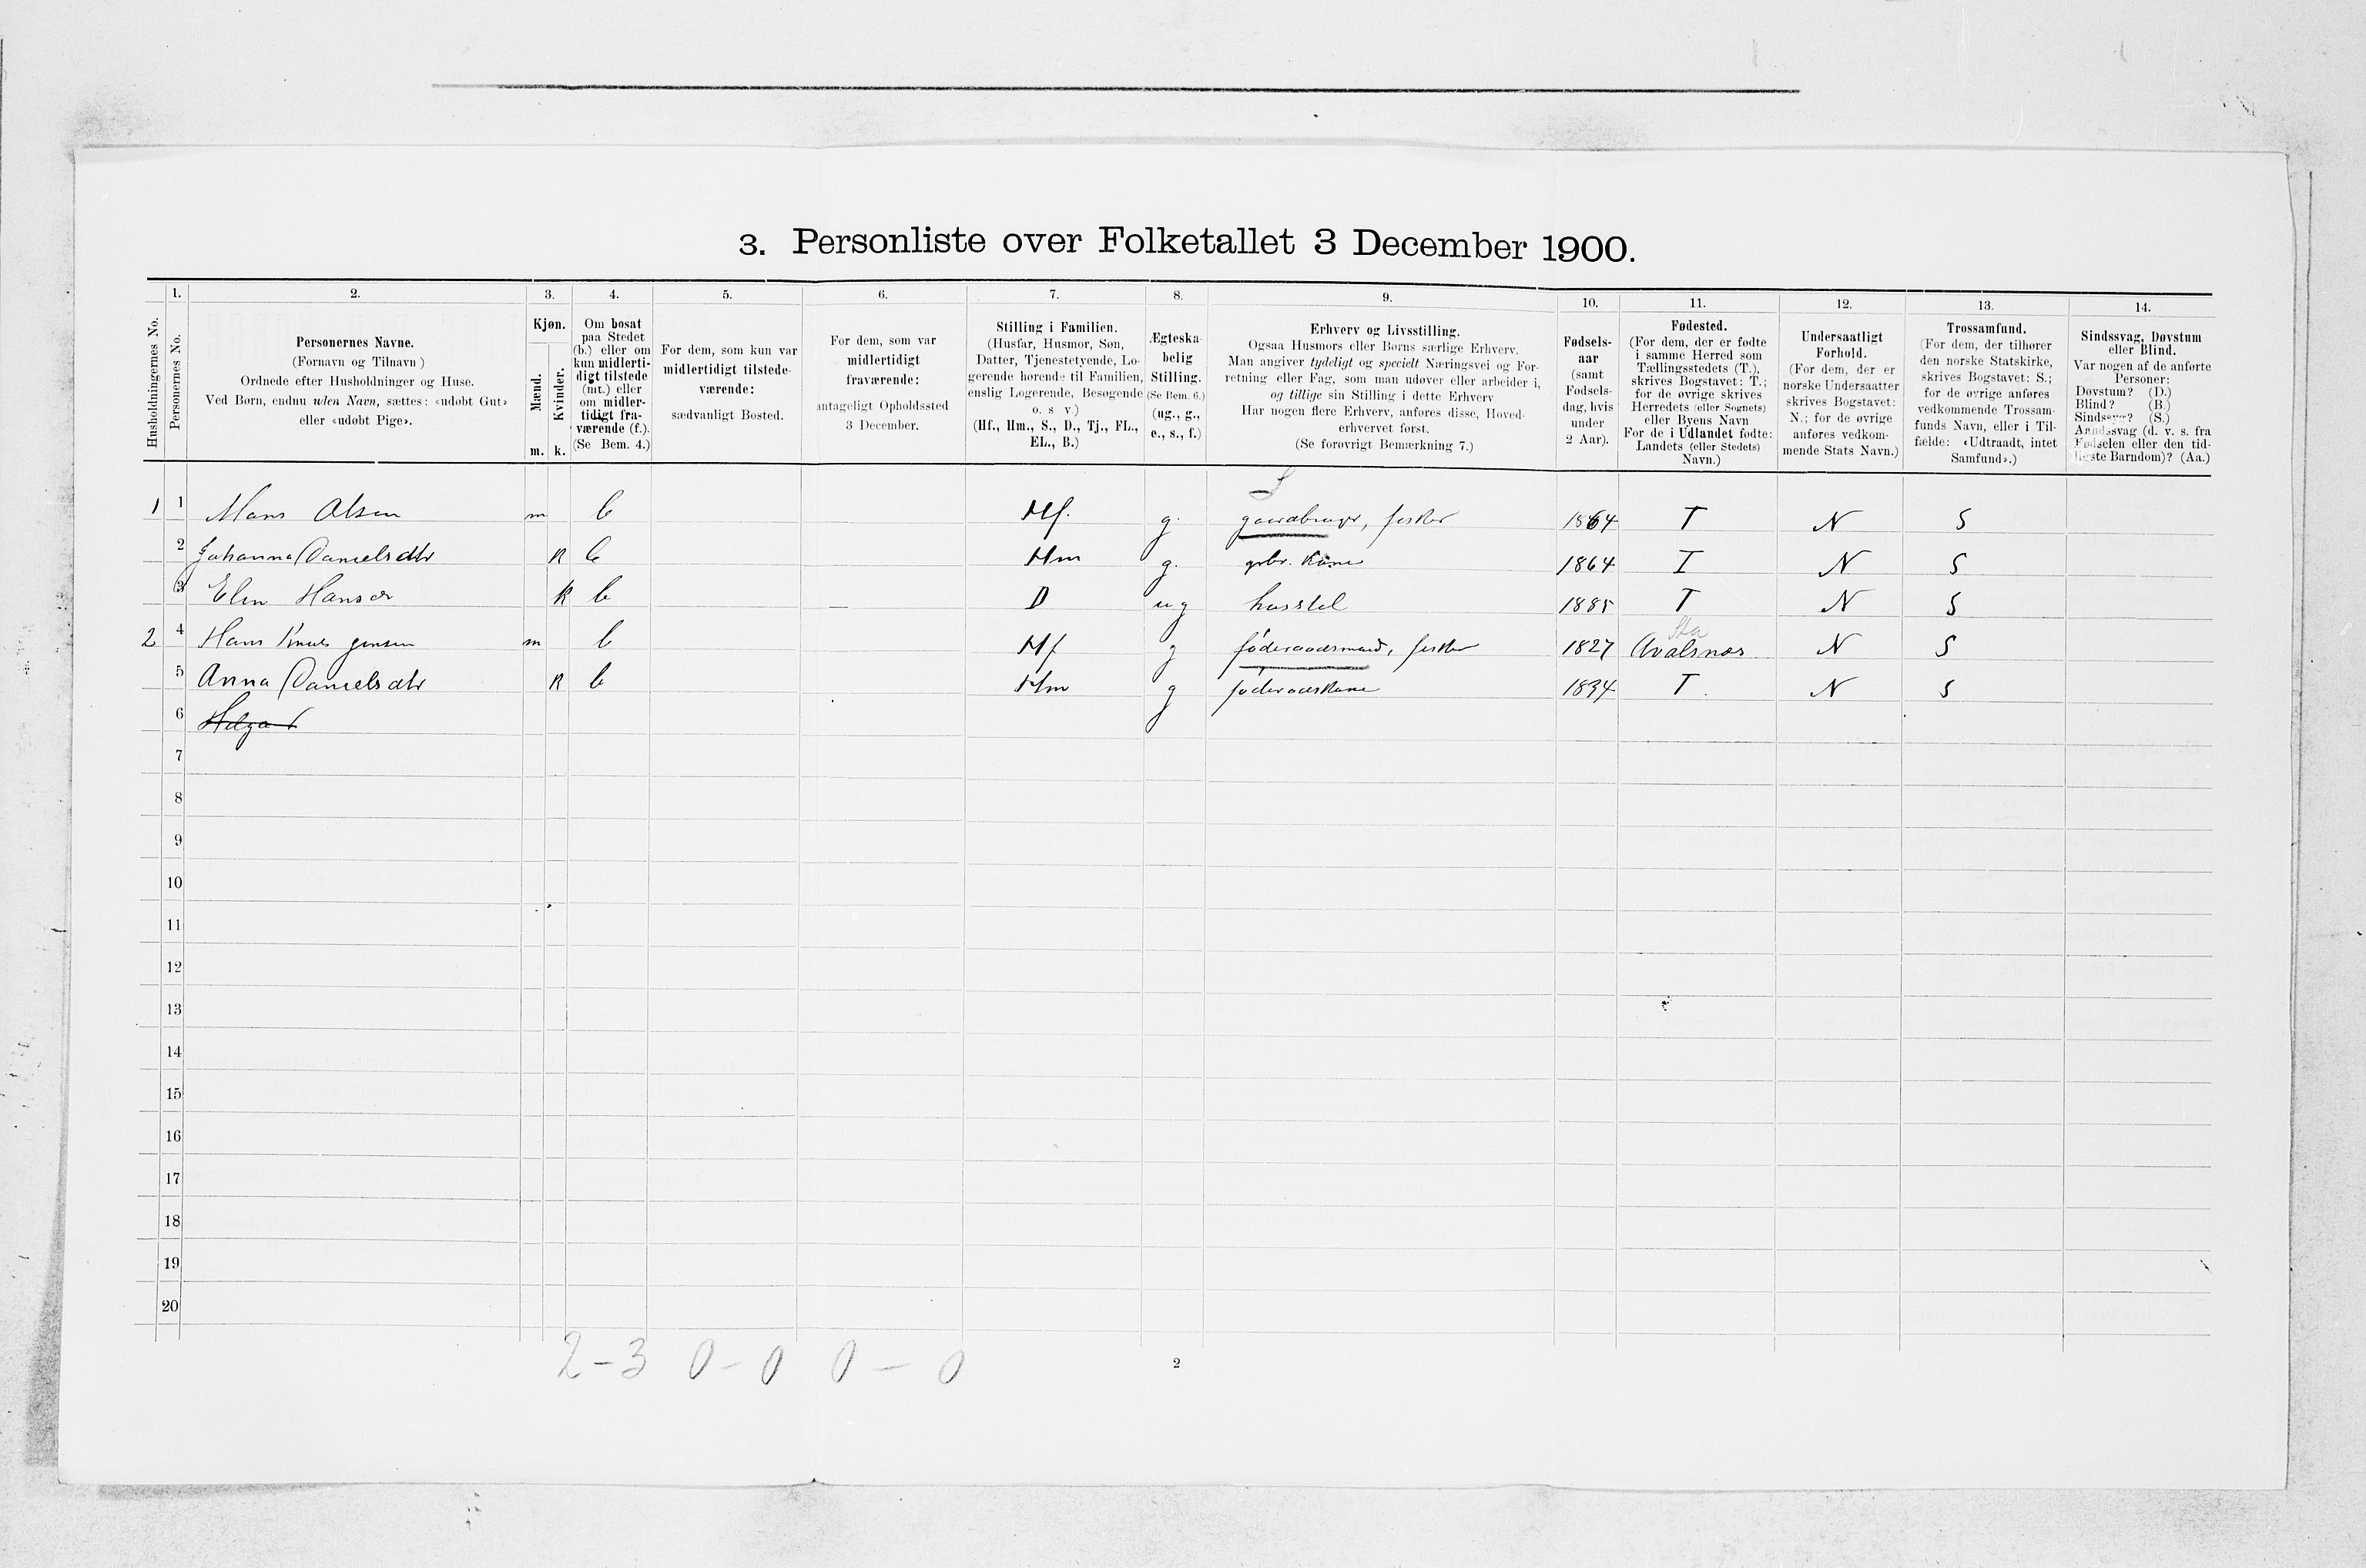 3. Personliste over Folketallet 3 December 1900.
Husholdningernes No.
1.
Personernes No.
2.
Personernes Navne.
(Fornavn og Tilnavn)
Ordnede efter Husholdninger og Huse.
Ved Børn, endnu uden Navn, sættes: «udøbt Gut»
eller «udøbt Pige».
3.
Kjøn.
Mænd.
Kvinder.
m. k.
4.
Om bosat
paa Stedet
(b.) eller om
kun midlerti-
digt tilstede
(mt.) eller
om midler-
tidigt fra-
værende (f.).
(Se Bem. 4.)
5.
For dem, som kun var
midlertidigt tilstede-
værende:
sædvanligt Bosted.
6.
For dem, som var
midlertidigt
fraværende:
antageligt Opholdssted
3 December.
7.
Stilling i Familien.
(Husfar, Husmor, Søn,
Datter, Tjenestetyende, Lo-
gerende hørende til Familien,
enslig Logerende, Besøgende
o. s v.)
(Hf., Hm., S., D., Tj., FL.,
EL., B.)
8.
Ægteska-
belig
Stilling.
(Se Bem. 6.)
(ug., g.,
e., s., f.)
9.
Erhverv og Livsstilling.
Ogsaa Husmors eller Børns særlige Erhverv.
Man angiver tydeligt og specielt Næringsvei og For-
retning eller Fag, som man udøver eller arbeider i,
og tillige sin Stilling i dette Erhverv
Har nogen flere Erhverv, anføres disse, Hoved-
erhvervet først.
(Se forøvrigt Bemærkning 7.)
10.
Fødsels-
aar
(samt
Fødsels-
dag, hvis
under
2 Aar).
11.
Fødested.
(For dem, der er fødte
i samme Herred som
Tællingsstedets (T.),
skrives Bogstavet: T.;
for de øvrige skrives
Herredets (eller Sognets)
eller Byens Navn
For de i Udlandet fødte:
Landets (eller Stedets)
Navn.)
12.
Undersaatligt
Forhold.
(For dem, der er
norske Undersaatter
skrives Bogstavet:
N.; for de øvrige
anføres vedkom-
mende Stats Navn.)
13.
Trossamfund.
(For dem, der tilhører
den norske Statskirke,
skrives Bogstavet: S.;
for de øvrige anføres
vedkommende Trossam-
funds Navn, eller i Til-
fælde: «Udtraadt, intet
Samfund».)
14.
Sindssvag, Døvstum
eller Blind.
Var nogen af de anførte
Personer:
Døvstum? (D.)
Blind? (B.)
Sindssvag? (S.)
Aandssvag (d. v. s. fra
Fødselen eller den tid-
ligste Barndom)? (Aa.)
1 1 Hans Olsen m b Hf. g. gaardbruger, fisker 1864 T N S
2 Johanna Danielsdtr k b Hm g. grbr. Kone 1864 T N S
3 Elen Hansdr k b D ug husstel 1885 T N S
2 4 Hans Knut Jensen m b Hf g föderaadsmand, fisker 1827 Avalsnæs N S
5 Anna Danielsdtr k b Hm g föderaadskone 1834 T. N S
6 Helga
7
8
9
10
11
12
13
14
15
16
17
18
19
20
2-3 0-0 0-0
2